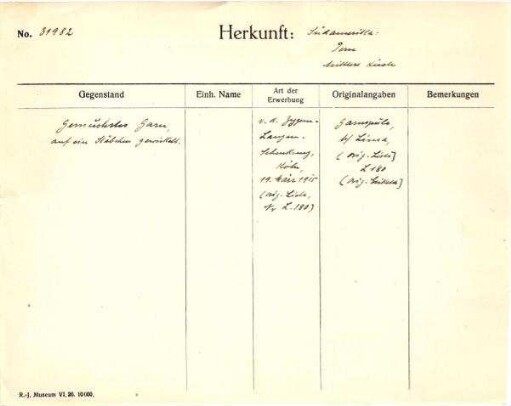 No. 31982
Herkunft: Südamerika.
Peru
Mittlere Küste
Gegenstand
Einh. Name
Art der
Erwerbung
Originalangaben
Bemerkungen
Gemischtes Garn,
auf ein Stäbchen gewickelt.
v. d.
Langen-
Schenkung,
Köln,
19. März 1915
(Orig. Liste,
Nr. L. 180)
Garnspule,
b/ Lima,
(Orig. Liste)
L 180
(Orig.
R.-J. Museum VI. 26. 10000.